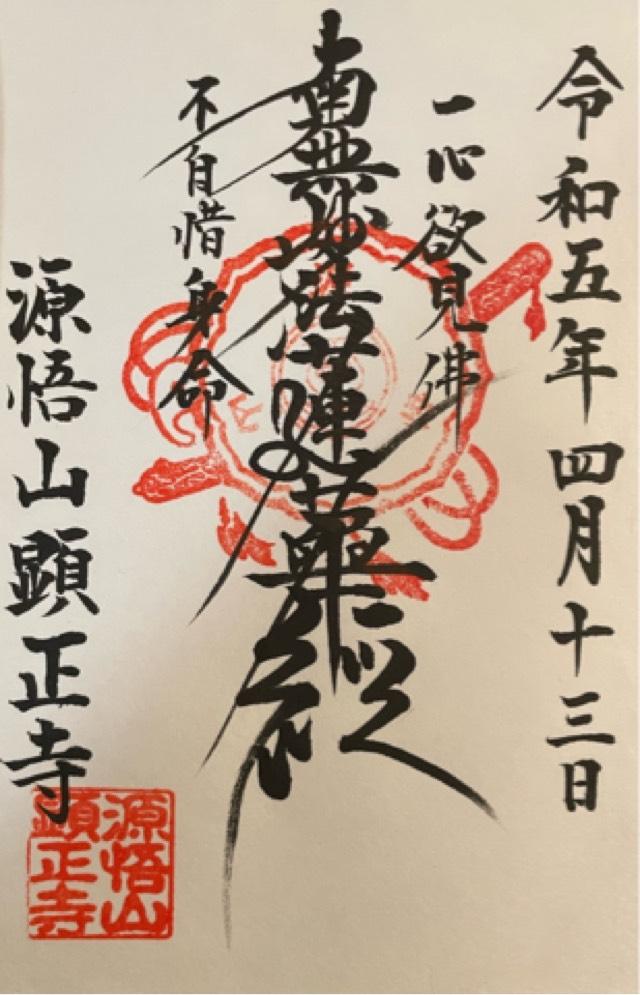 令和五年四月十三日
一心欲見佛
南無妙法蓮華経
不自惜身命
源悟山顕正寺
源悟山
顕正寺